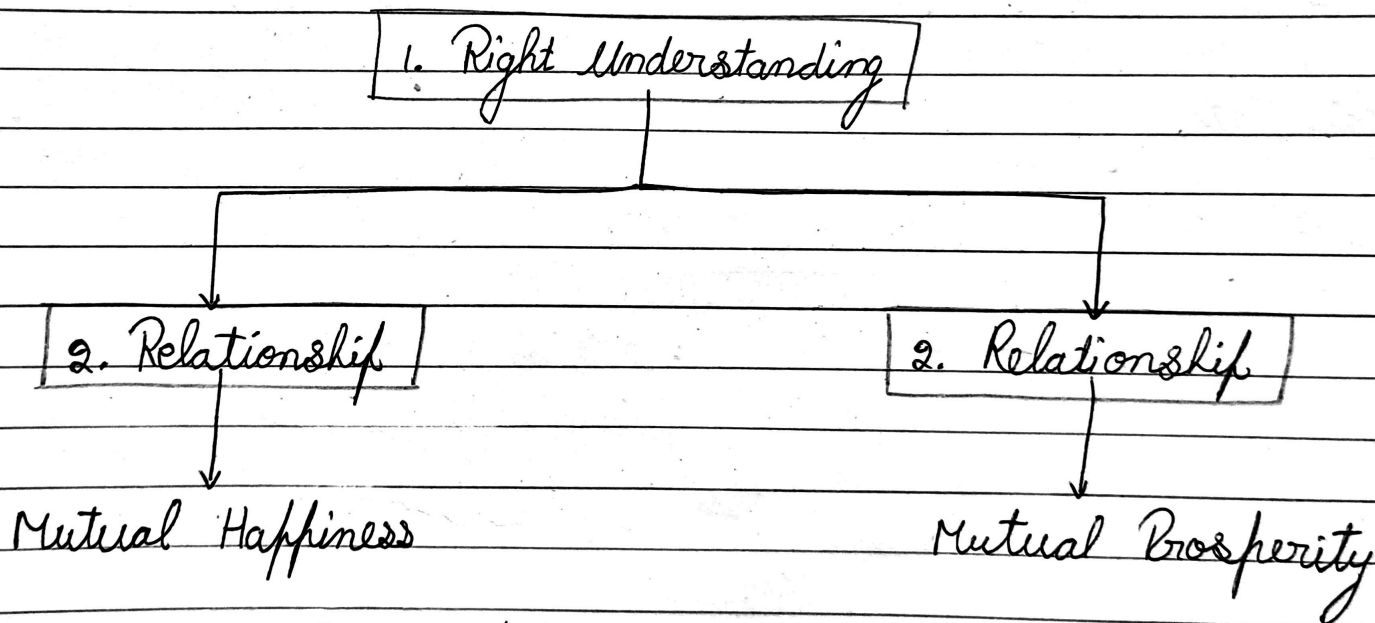 1. Right Understanding
2. Relationship 2. Relationship
Mutual Happiness Mutual Prosperity